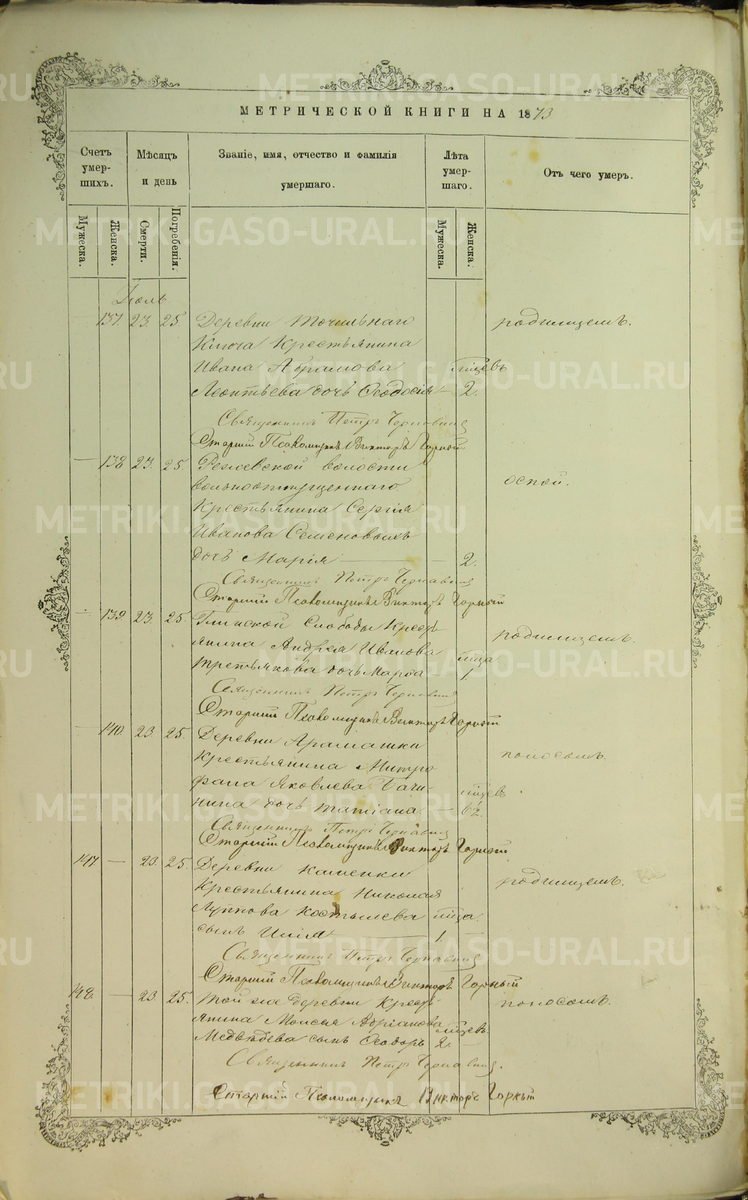 МЕТРИЧЕСКОЙ КНИГИ НА 1873
Счетъ умерших.
Мѣсяцъ и день
Званіе, имя, отчество и фамилія умершаго.
Лѣта умершаго.
Отъ чего умеръ.
Мужеска.
Женска.
Смерти.
Погребенія.
Мужеска.
Женска.
Іюль
137. 23. 25 Деревни Точильнаго родимцемъ.
Ключа Крестьянина
Ивана Абрамова мѣсяцевъ
Леонтьева дочь Ѳеодосія — 2.
Священникъ Петръ
Старшій Псаломщикъ Викторъ Горный
— 138 23. 25. Режевской волости оспой.
вольноотпущеннаго
Крестьянина Сергія
Иванова Семеновыхъ
дочь Марія — 2.
Священникъ Петръ
Старшій Псаломщикъ Викторъ Горный
— 139 23. 25. Глинской Слободы Кресть родимцемъ.
янина Андрея Иванова мѣсяца
Третьякова дочь Марѳа — 1
Священникъ Петръ
Старшій Псаломщикъ Викторъ Горный
— 140. 23. 25. Деревни Арамашки поносомъ.
Крестьянина Митро
фана Яковлева
дочь Татіана —
Священникъ Петръ
Старшій Псаломщикъ Викторъ Горный
— 23. 25. Деревни Каменки родимцемъ.
Крестьянина Николая
Костылева мѣсяца
сынъ Илія — 1 —
Священникъ Петръ
Старшій Псаломщикъ Викторъ Горный
— 23. 25. Той же деревни Кресть поносомъ.
янина Моисея Адріанова мѣсяцевъ
Медвѣдева сынъ Ѳеодоръ 2. —
Священникъ Петръ
Старшій Псаломщикъ Викторъ Горный
METRIKI.GASO-URAL.RU